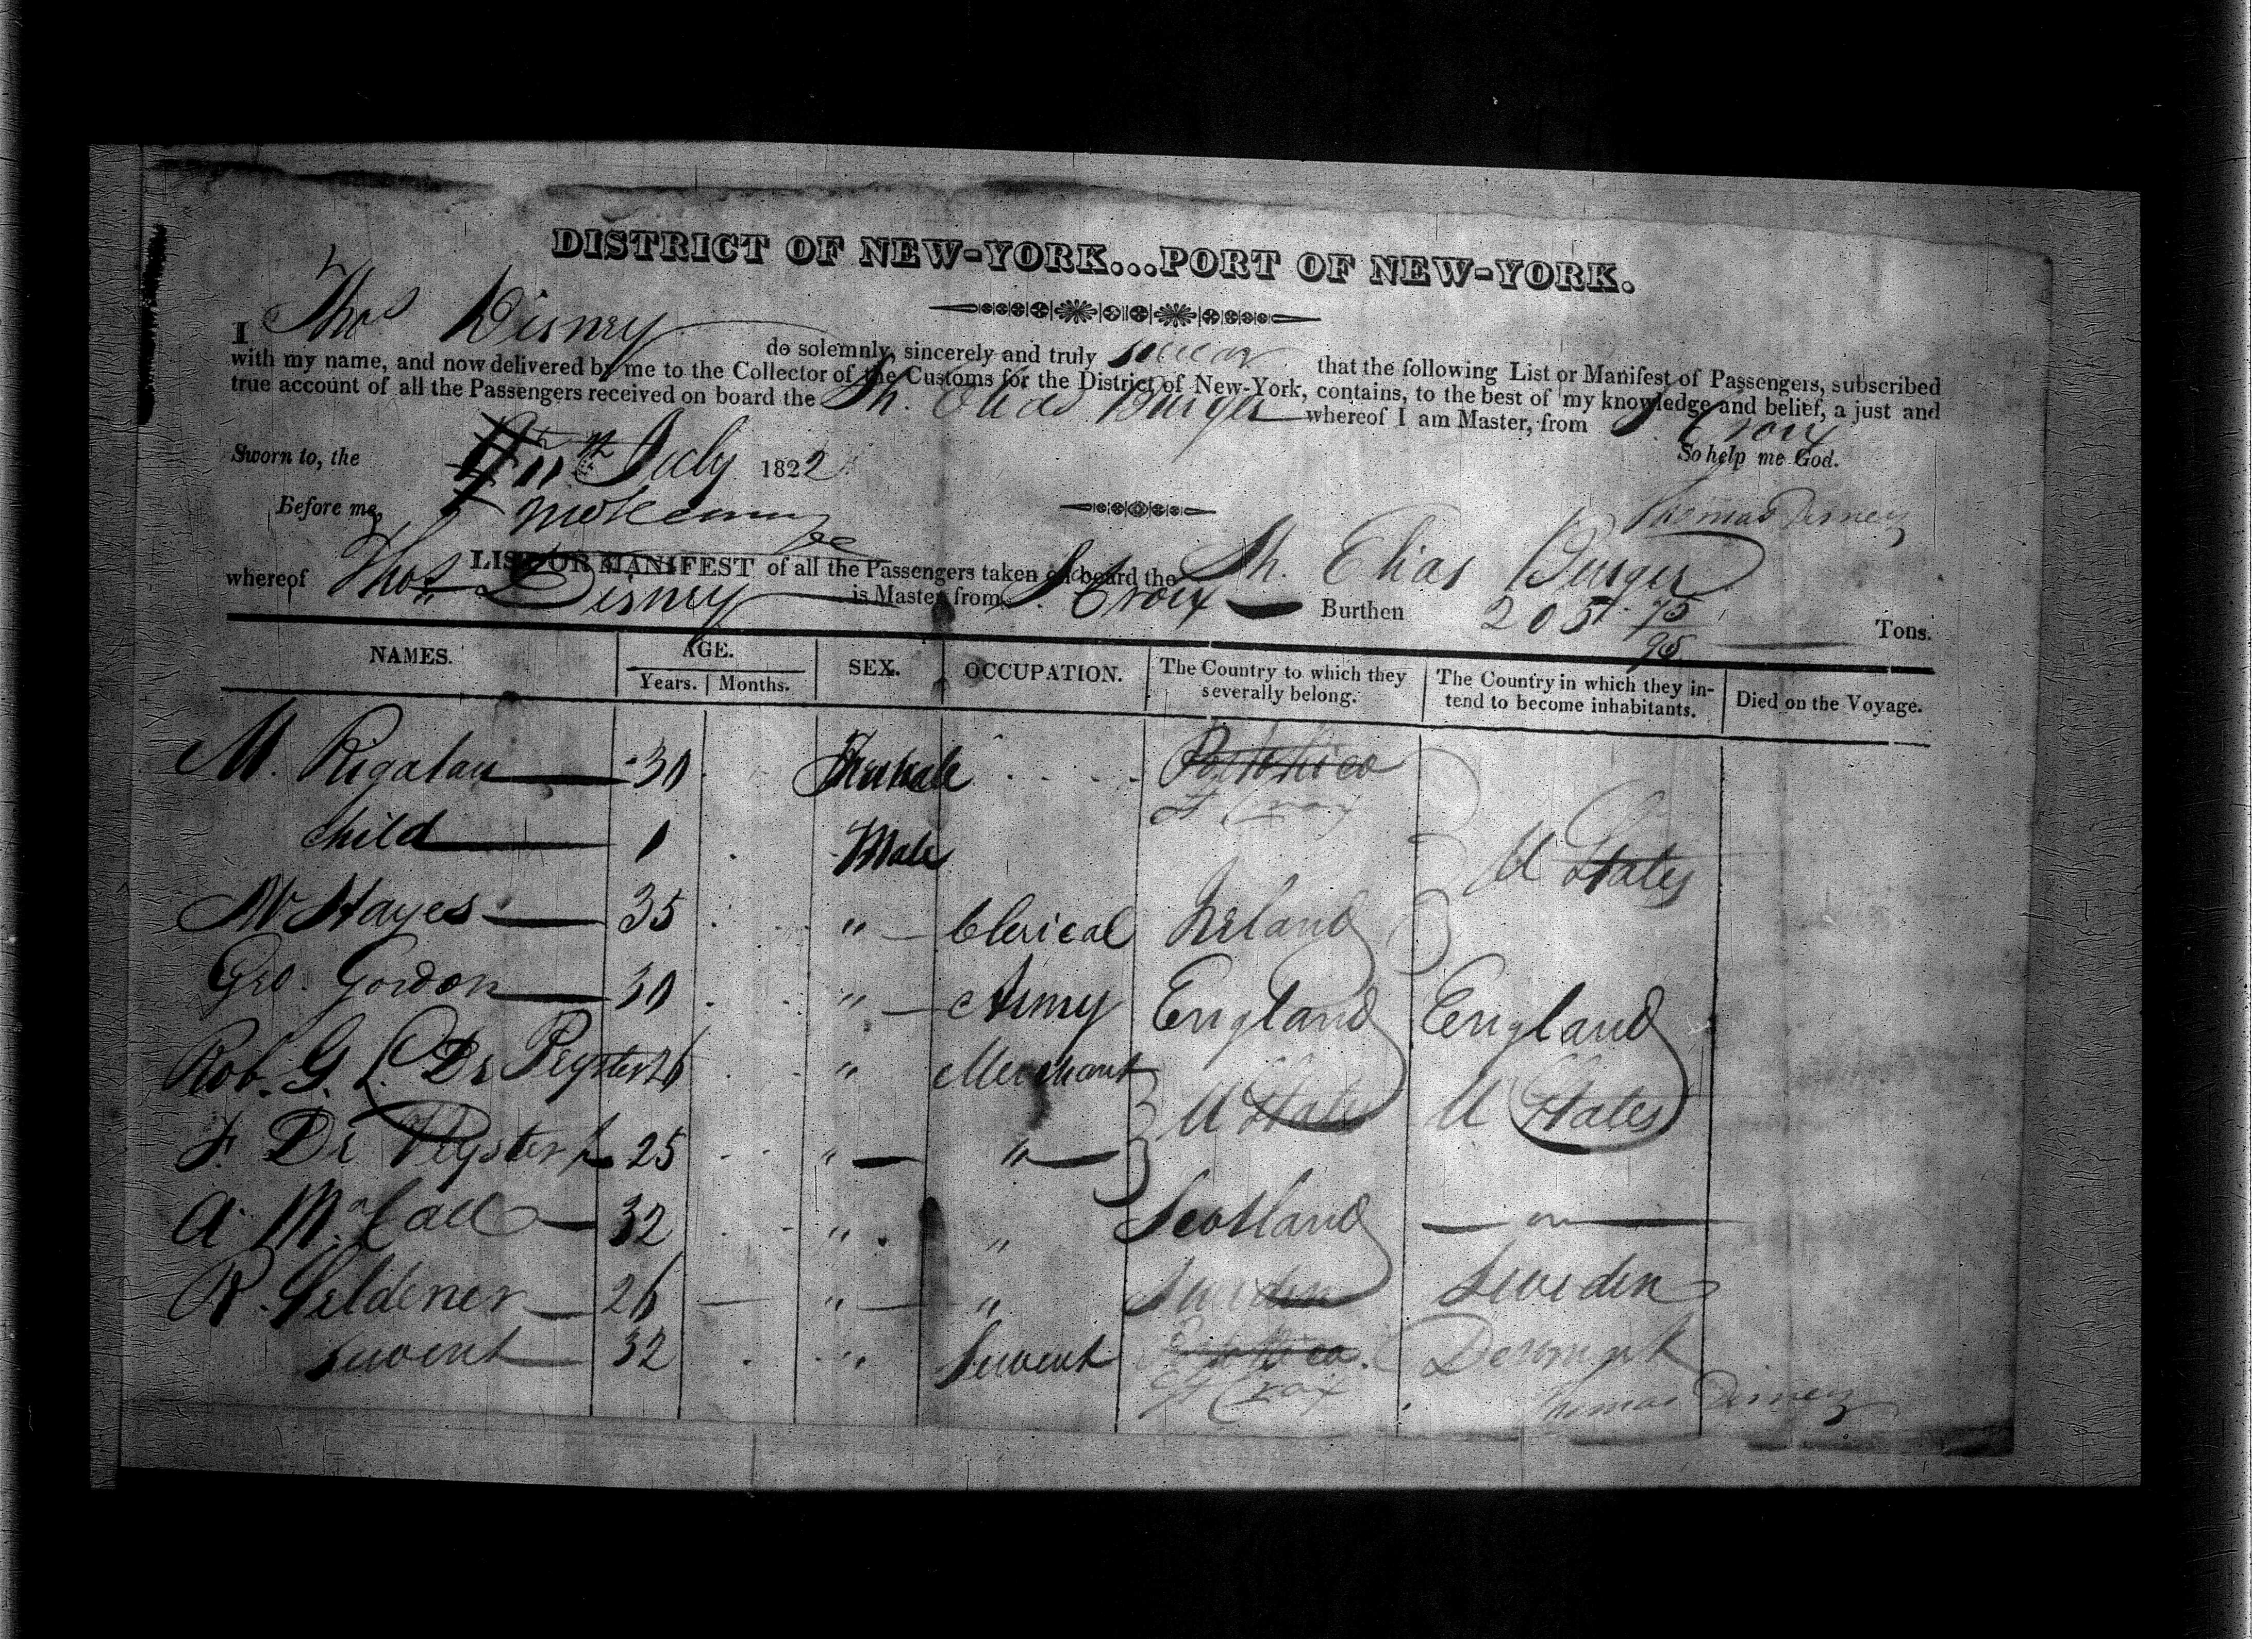 DISTRICT OF NEW-YORK...PORT OF NEW-YORK.
I Thos Disney do solemnly, sincerely and truly swear that the following List or Manifest of Passengers, subscribed
with my name, and now delivered by me to the Collector of the Customs for the District of New-York, contains, to the best of my knowledge and belief, a just and
true account of all the Passengers received on board the Sh. Elias Burger whereof I am Master, from St Croix
So help me God.
Sworn to, the 11th July 1822
Before me,
Thomas Disney
LIST OR MANIFEST of all the Passengers taken on board the Sh. Elias Burger
whereof Thos Disney is Master from St Croix Burthen 205 75/95 Tons.
NAMES. AGE. SEX. OCCUPATION. The Country to which they severally belong. The Country in which they intend to become inhabitants. Died on the Voyage.
Years. Months.
M. Rigalau 30 Female Porto Rico
St Croix
Child 1 Male U States
W Hayes 35 " Clerical Ireland
Geo. Gordon 30 " Army England England
Rob. G. L. De Peyster 26 " Merchant U States U States
F. De Peyster Jr 25 " "
A. McCall 32 " " Scotland
R. Seldener 26 " " Sweden Sweden
Servent 32 " Servent Porto Rico Denmark
St Croix
Thomas Disney